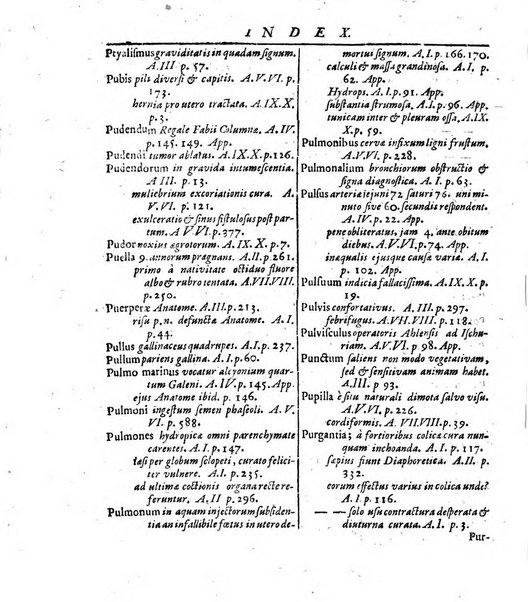 INDEX.
Ptyalismus graviditatis in quadam signum.
A. III p. 57.
Pubis pili diversi & capitis. A. V. VI. p.
173.
hernia pro utero tractata. A. IX. X.
p. 3.
Pudendum Regale Fabii Columnæ. A. IV.
p. 145. 149. App.
Pudendi tumor ablatus. A. IX. X. p. 126.
Pudendorum in gravida intumescentia.
A. III. p. 13.
muliebrium excoriationis cura. A.
V. VI. p. 121.
exulceratio & sinus fistulosus post par-
tum. A V VI. p. 377.
Pudor noxius ægrotorum. A. IX. X. p. 7.
Puella 9. annorum prægnans. A. II. p. 261.
primo à nativitate octiduo fluore
albo & rubro tentata. A. VII. VIII.
p. 250.
Puerperæ Anatome. A. III. p. 213.
risu p. n. defunctæ Anatome. A. I.
p. 44.
Pullus gallinaceus quadrupes. A. I. p. 237.
Pullum pariens gallina. A. I. p. 60.
Pulmo marinus vocatur alcyonium quar-
tum Galeni. A. IV. p. 145. App.
ejus Anatome ibid. p. 146.
Pulmoni ingestum semen phaseoli. A. V.
VI. p. 588.
Pulmones hydropicæ omni parenchymate
carentes. A. I. p. 147.
læsi per globum sclopeti, curato felici-
ter vulnere. A. I. p. 235.
ad ultimæ coctionis organa recte re-
feruntur. A. II p. 296.
Pulmonum in aquam injectorum subsiden-
tia an infallibile fœtus in utero de-
mortui signum. A. I. p. 166. 170.
calculi & massa grandinosa. A. I. p.
62. App.
Hydrops. A. I. p. 91. App.
substantia strumosa. A. I. p. 96. App.
tunicam inter & pleuram ossa. A. IX.
X. p. 59.
Pulmonibus cervæ infixum ligni frustum.
A. V. VI. p. 228.
Pulmonalium bronchiorum obstructio &
signa diagnostica. A. I. p. 63.
Pulsus arteriæ jejuni 72 saturi 76. uni mi-
nuto sive 60. secundis respondent.
A. IV. p. 34.
pene obliteratus, jam 4. ante obitum
diebus. A. V. VI. p. 74. App.
inæqualis ejusque causæ variæ. A. I.
p. 102. App.
Pulsuum indicia fallacissima. A. IX. X. p.
19.
Pulvis confortativus. A. III. p. 297.
febrifugus. A. VII. VIII. p. 118.
Pulvisculus operatoris Ahlensis ad Ischu-
riam. A. V. VI. p. 92. App.
Punctum saliens non modo vegetativam,
sed & sensitivam animam habet.
A. III. p. 93.
Pupilla è situ naturali dimota salvo visu.
A. V. VI. p. 226.
cordiformis. A. VII. VIII. p. 39.
Purgantia; à fortioribus colica cura nun-
quam inchoanda. A. I. p. 117.
sæpius fiunt Diaphoretica. A. II. p.
332.
eorum effectus varius in colica unde?
A. I. p. 116.
— — solo usu contractura desperata &
diuturna curata. A. I. p. 3.
Pur-